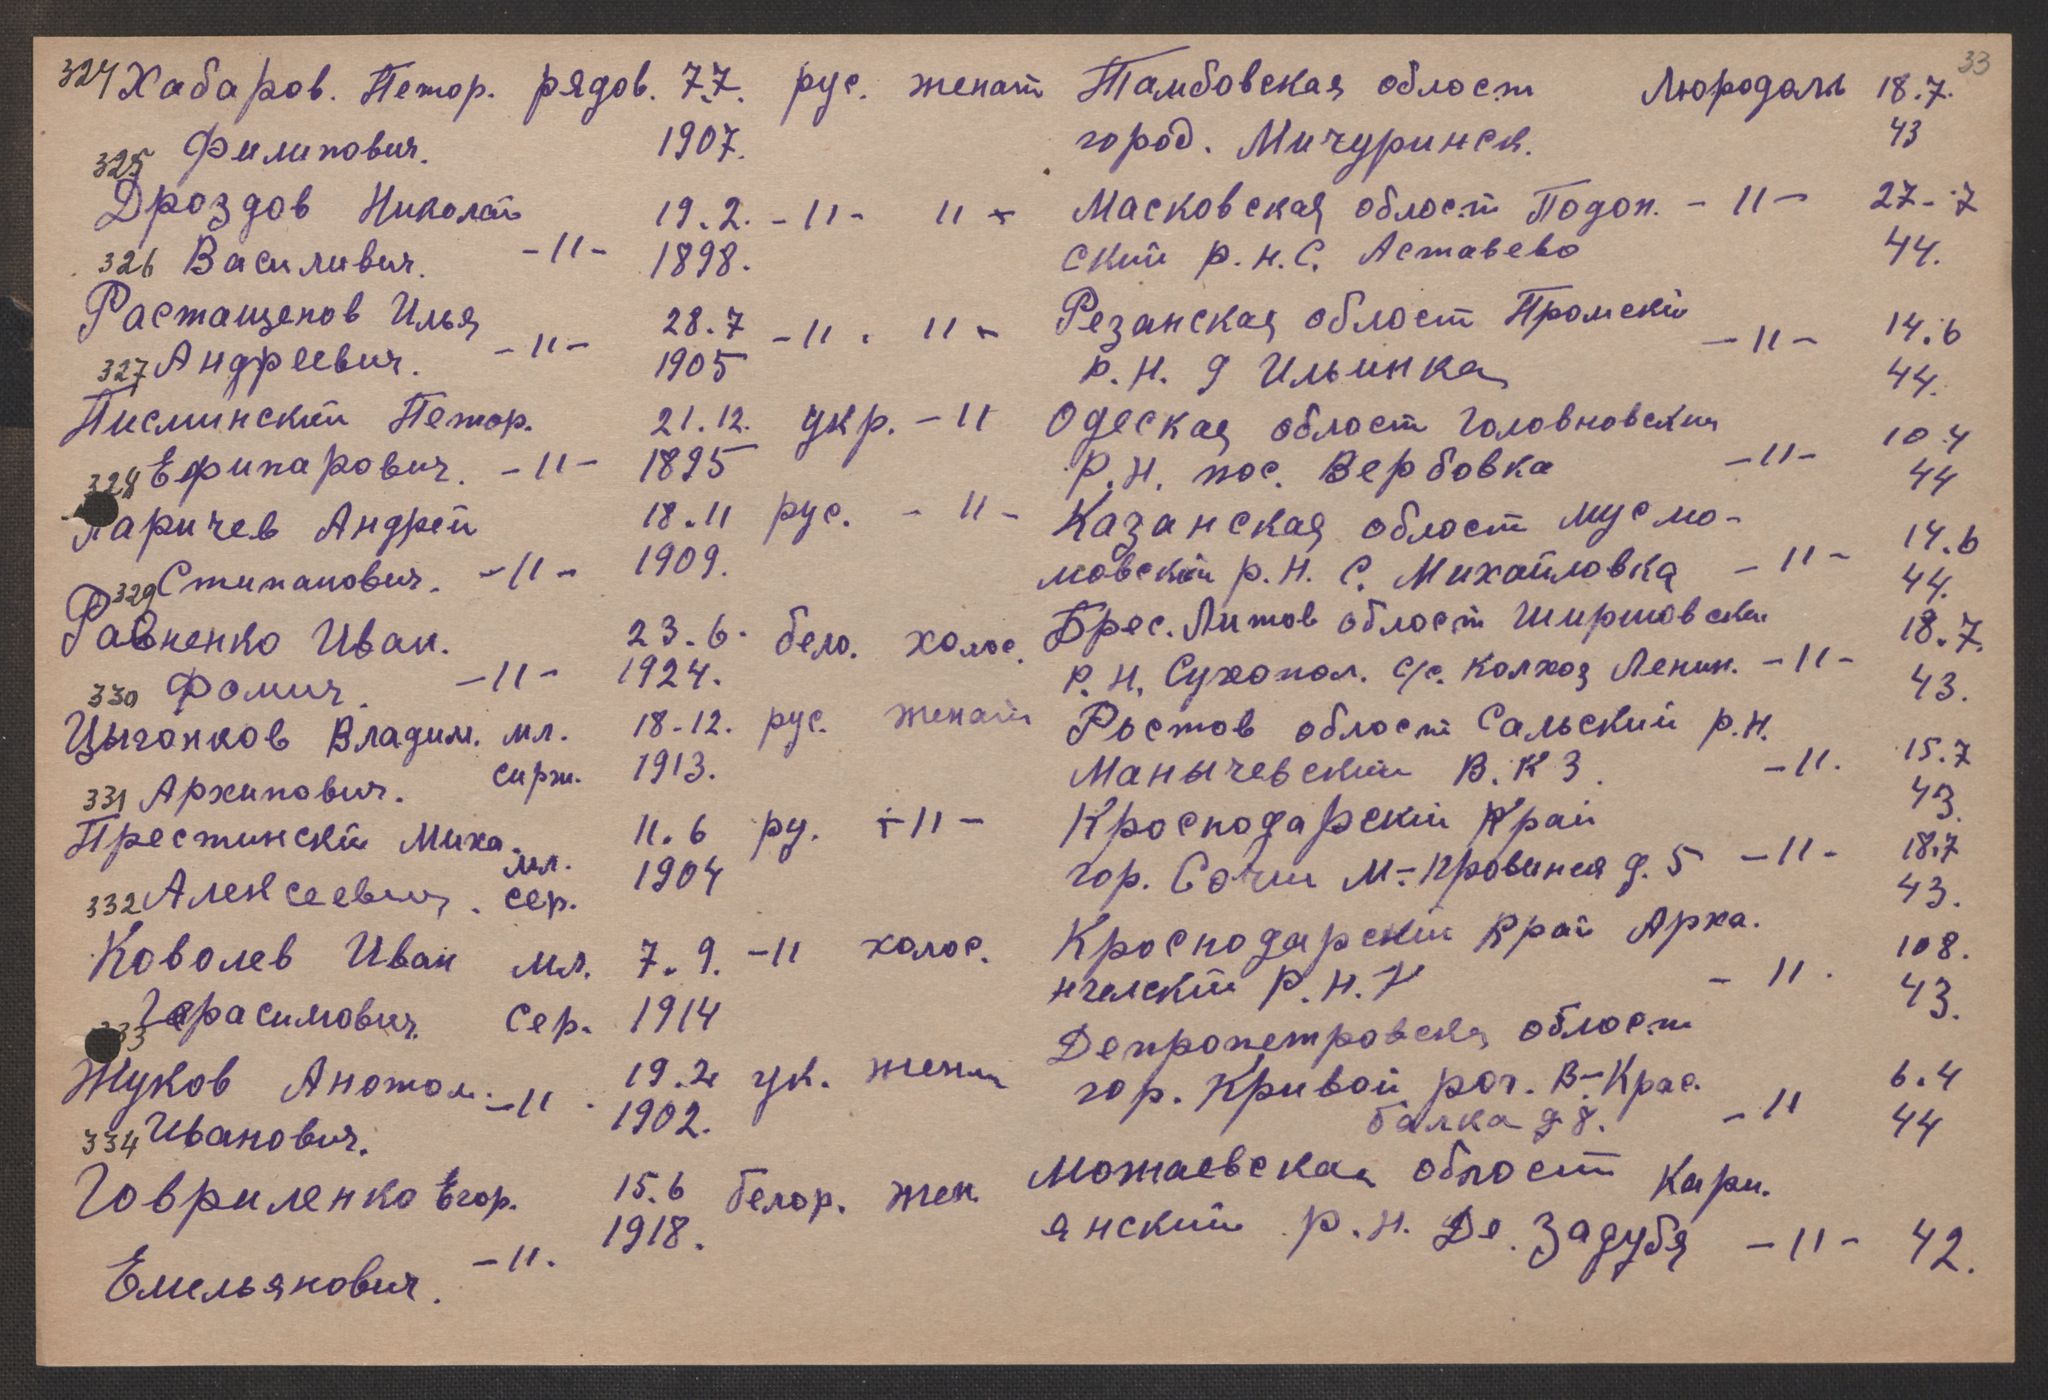 33
324 Хабаров. Петор. рядов. 7.7. рус. женат Тамбовская област Люродаль 18.7.
Филипович. 1907. город. Мичуринск. 43
325
Дроздов Николай 19.2. -11- 11 - Масковская област Подол. - 11 - 27.7
326 Василивич. -11- 1898. ский р.н. С. Аставево 44.
Растащепов Илья 28.7 -11. 11 - Резанская област Промскій 14.6
327 Андреевич. -11- 1905 р.н. д Ильинка -11- 44.
Писминский Петор. 21.12. укр. -11 Одеская област Головновский 10.4
328 Ефипарович. -11- 1895 р.н. пос. Вербовка -11- 44
Ларичев Андрей 18.11 рус. -11- Казанская област мусмо-
14.6
329 Стипанович. -11- 1909. мовский р.н. С. Михайловка -11- 44.
Равненко Иван. 23.6. бело. холос. Брес. Литов област Ширшовский 18.7.
330 Фомич. -11- 1924. р.н. Сухопол. с/с. колхоз Ленин. -11- 43.
Цыганков Владим. мл. 18-12. рус. женат Ростов област Сальский р.н.
15.7
331 Архипович. сирж. 1913. Манычевский В.К З. -11. 43.
Престинскій Миха. мл. 11.6 ру. -11- Кросподарскій Край 18.7
332 Алексеевич. сер. 1904 гор. Сочи М-Кровинся д. 5 -11- 43.
Коволев Иван мл. 7.9. -11 холос. Кросподарский край Арха. 10 8.
Герасимович. сер. 1914 нгелскій р.н. - 11. 43.
333
Депропетровска област
Жуков Анотол. -11. 19.2 ук. жена гор. Кривой рог. В-Крас. 6.4
334 Иванович. 1902. балка д 8. -11 44
Говриленко Егор. 15.6 белор. жен. можаевская област Кари.
Емельянович. -11. 1918. янский р.н. Де. Задубя -11- 42.